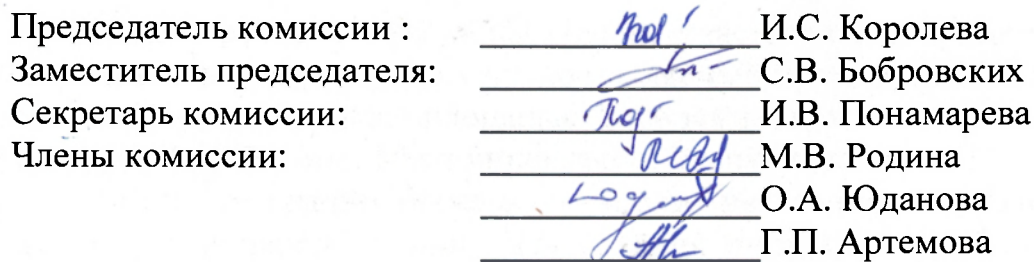 Председатель комиссии : И.С. Королева
Заместитель председателя: С.В. Бобровских
Секретарь комиссии: И.В. Понамарева
Члены комиссии: М.В. Родина
О.А. Юданова
Г.П. Артемова